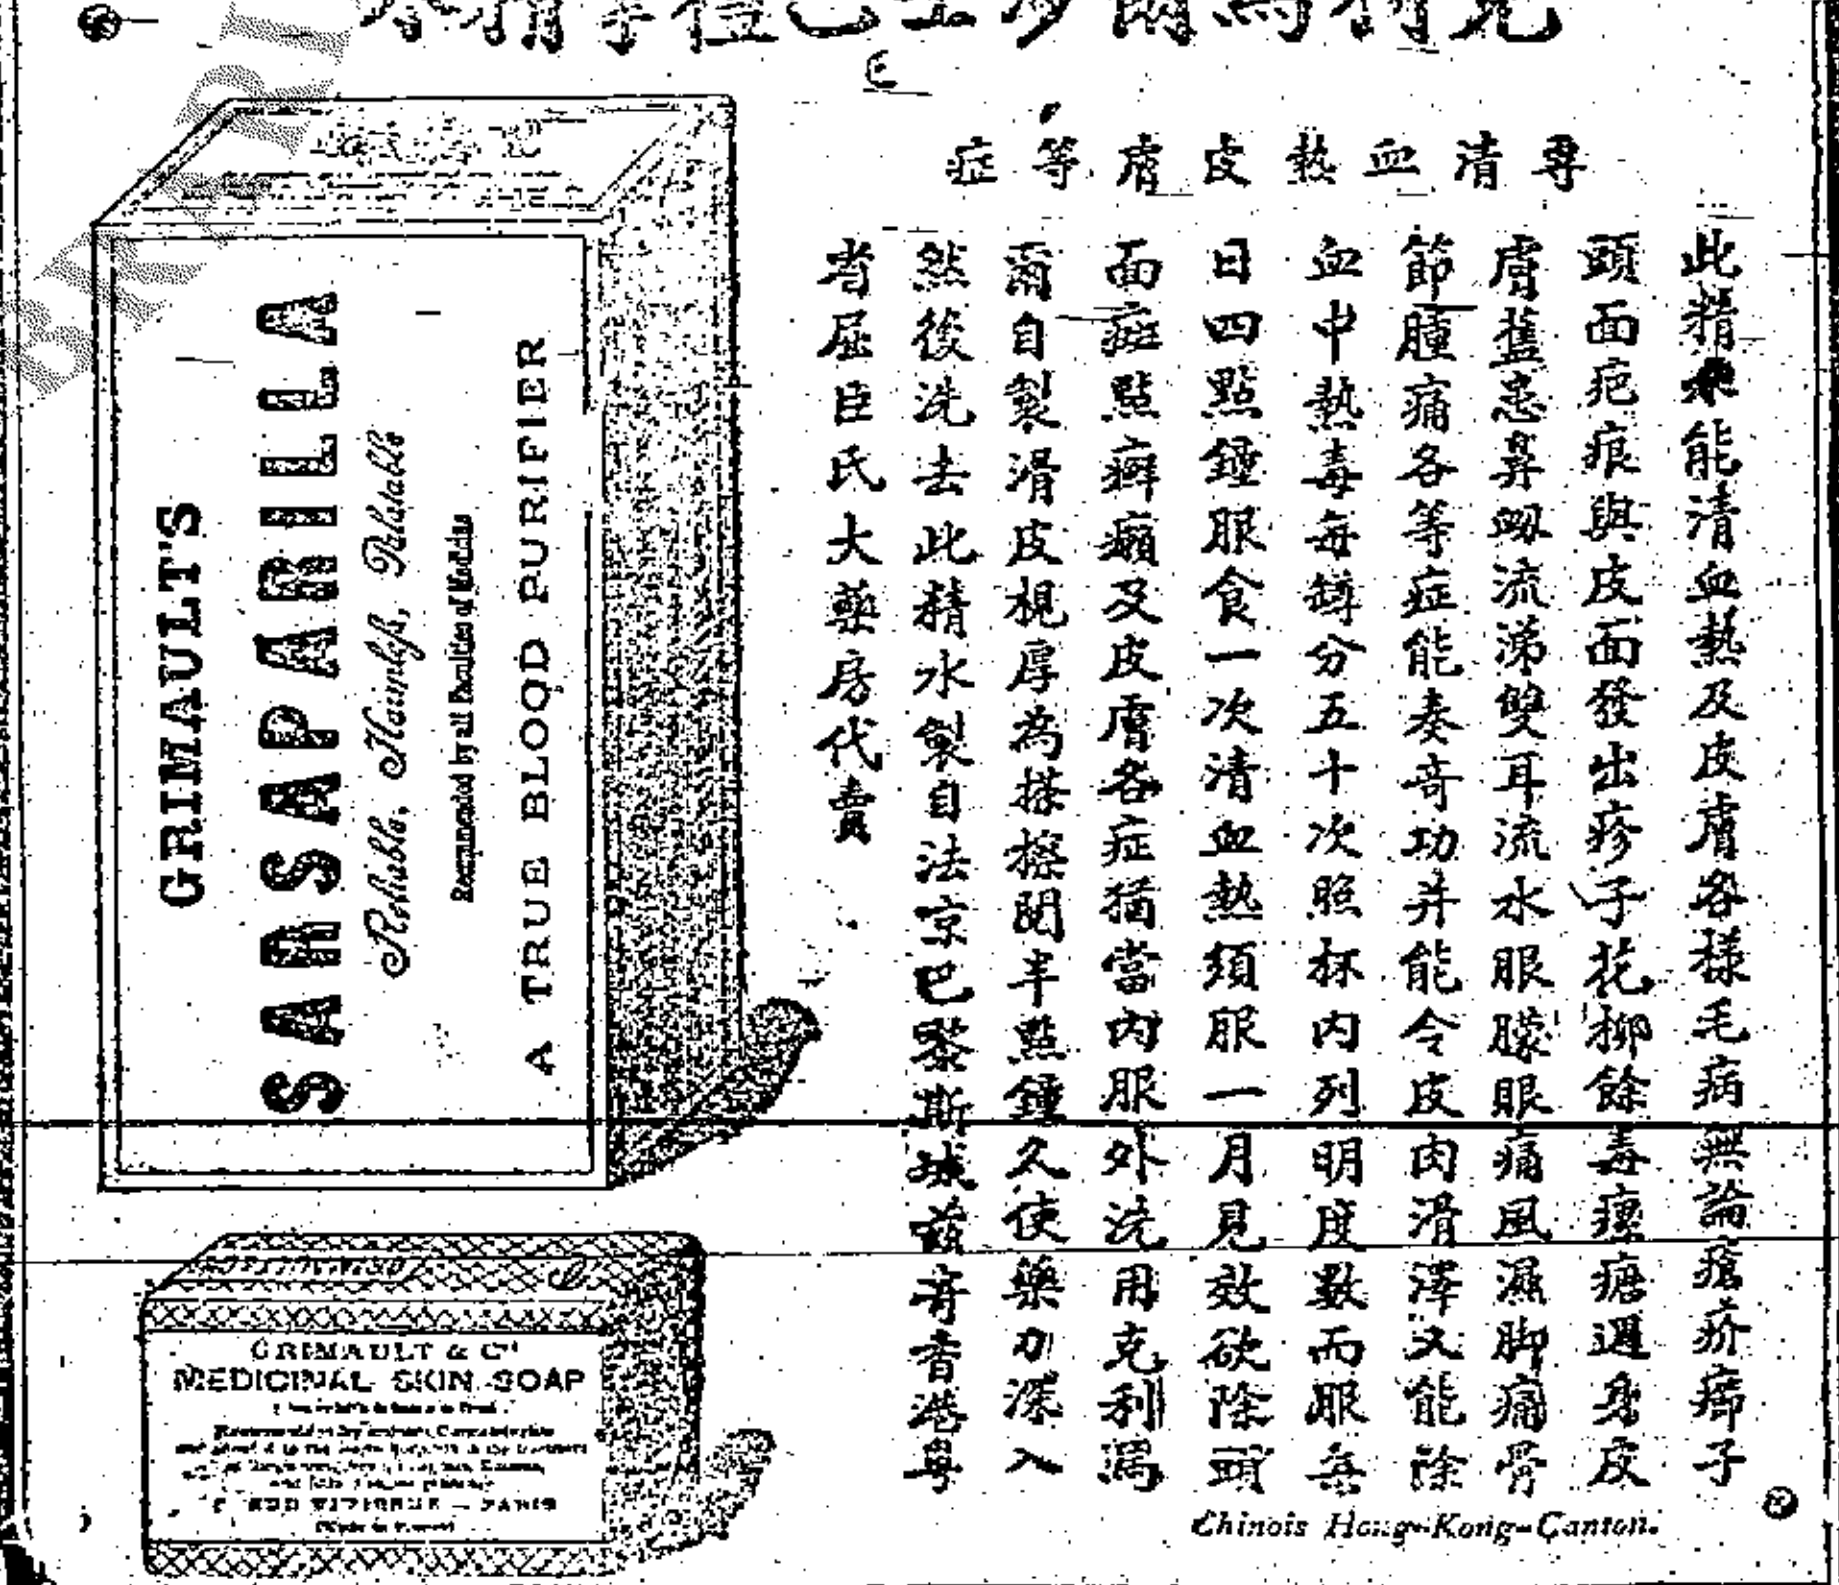 尋清血熱皮膚等症
此精水能清血熱及皮膚各樣毛病無論瘡疥癤子
頭面疤痕與皮面發出疹子花柳餘毒瘰瘡遇身皮
膚舊患鼻衂流涕雙耳流水眼矇眼痛風濕脚痛骨
節腫痛各等症能奏奇功并能令皮肉滑澤又能除
血中熱毒每罇分五十次照杯内列明度數而服每
日四點鐘服食一次清血熱須服一月見效欲除頭
面痣點癬癩及皮膚各症猶當内服外洗用克利瑪
爾自製滑皮梘厚為搽擦閱半點鐘久使藥力深入
然後洗去此精水製自法京巴黎斯城 香港粤
省屈臣氏大藥房代賣
GRIMAULT'S
SARSAPARILLA
Reliable, Harmless, Palatable
Recommended by all Faculties of Medicine
A TRUE BLOOD PURIFIER
GRIMAULT & Cie
MEDICINAL SKIN SOAP
RUE VIVIENNE — PARIS
Chinois Hong-Kong-Canton.